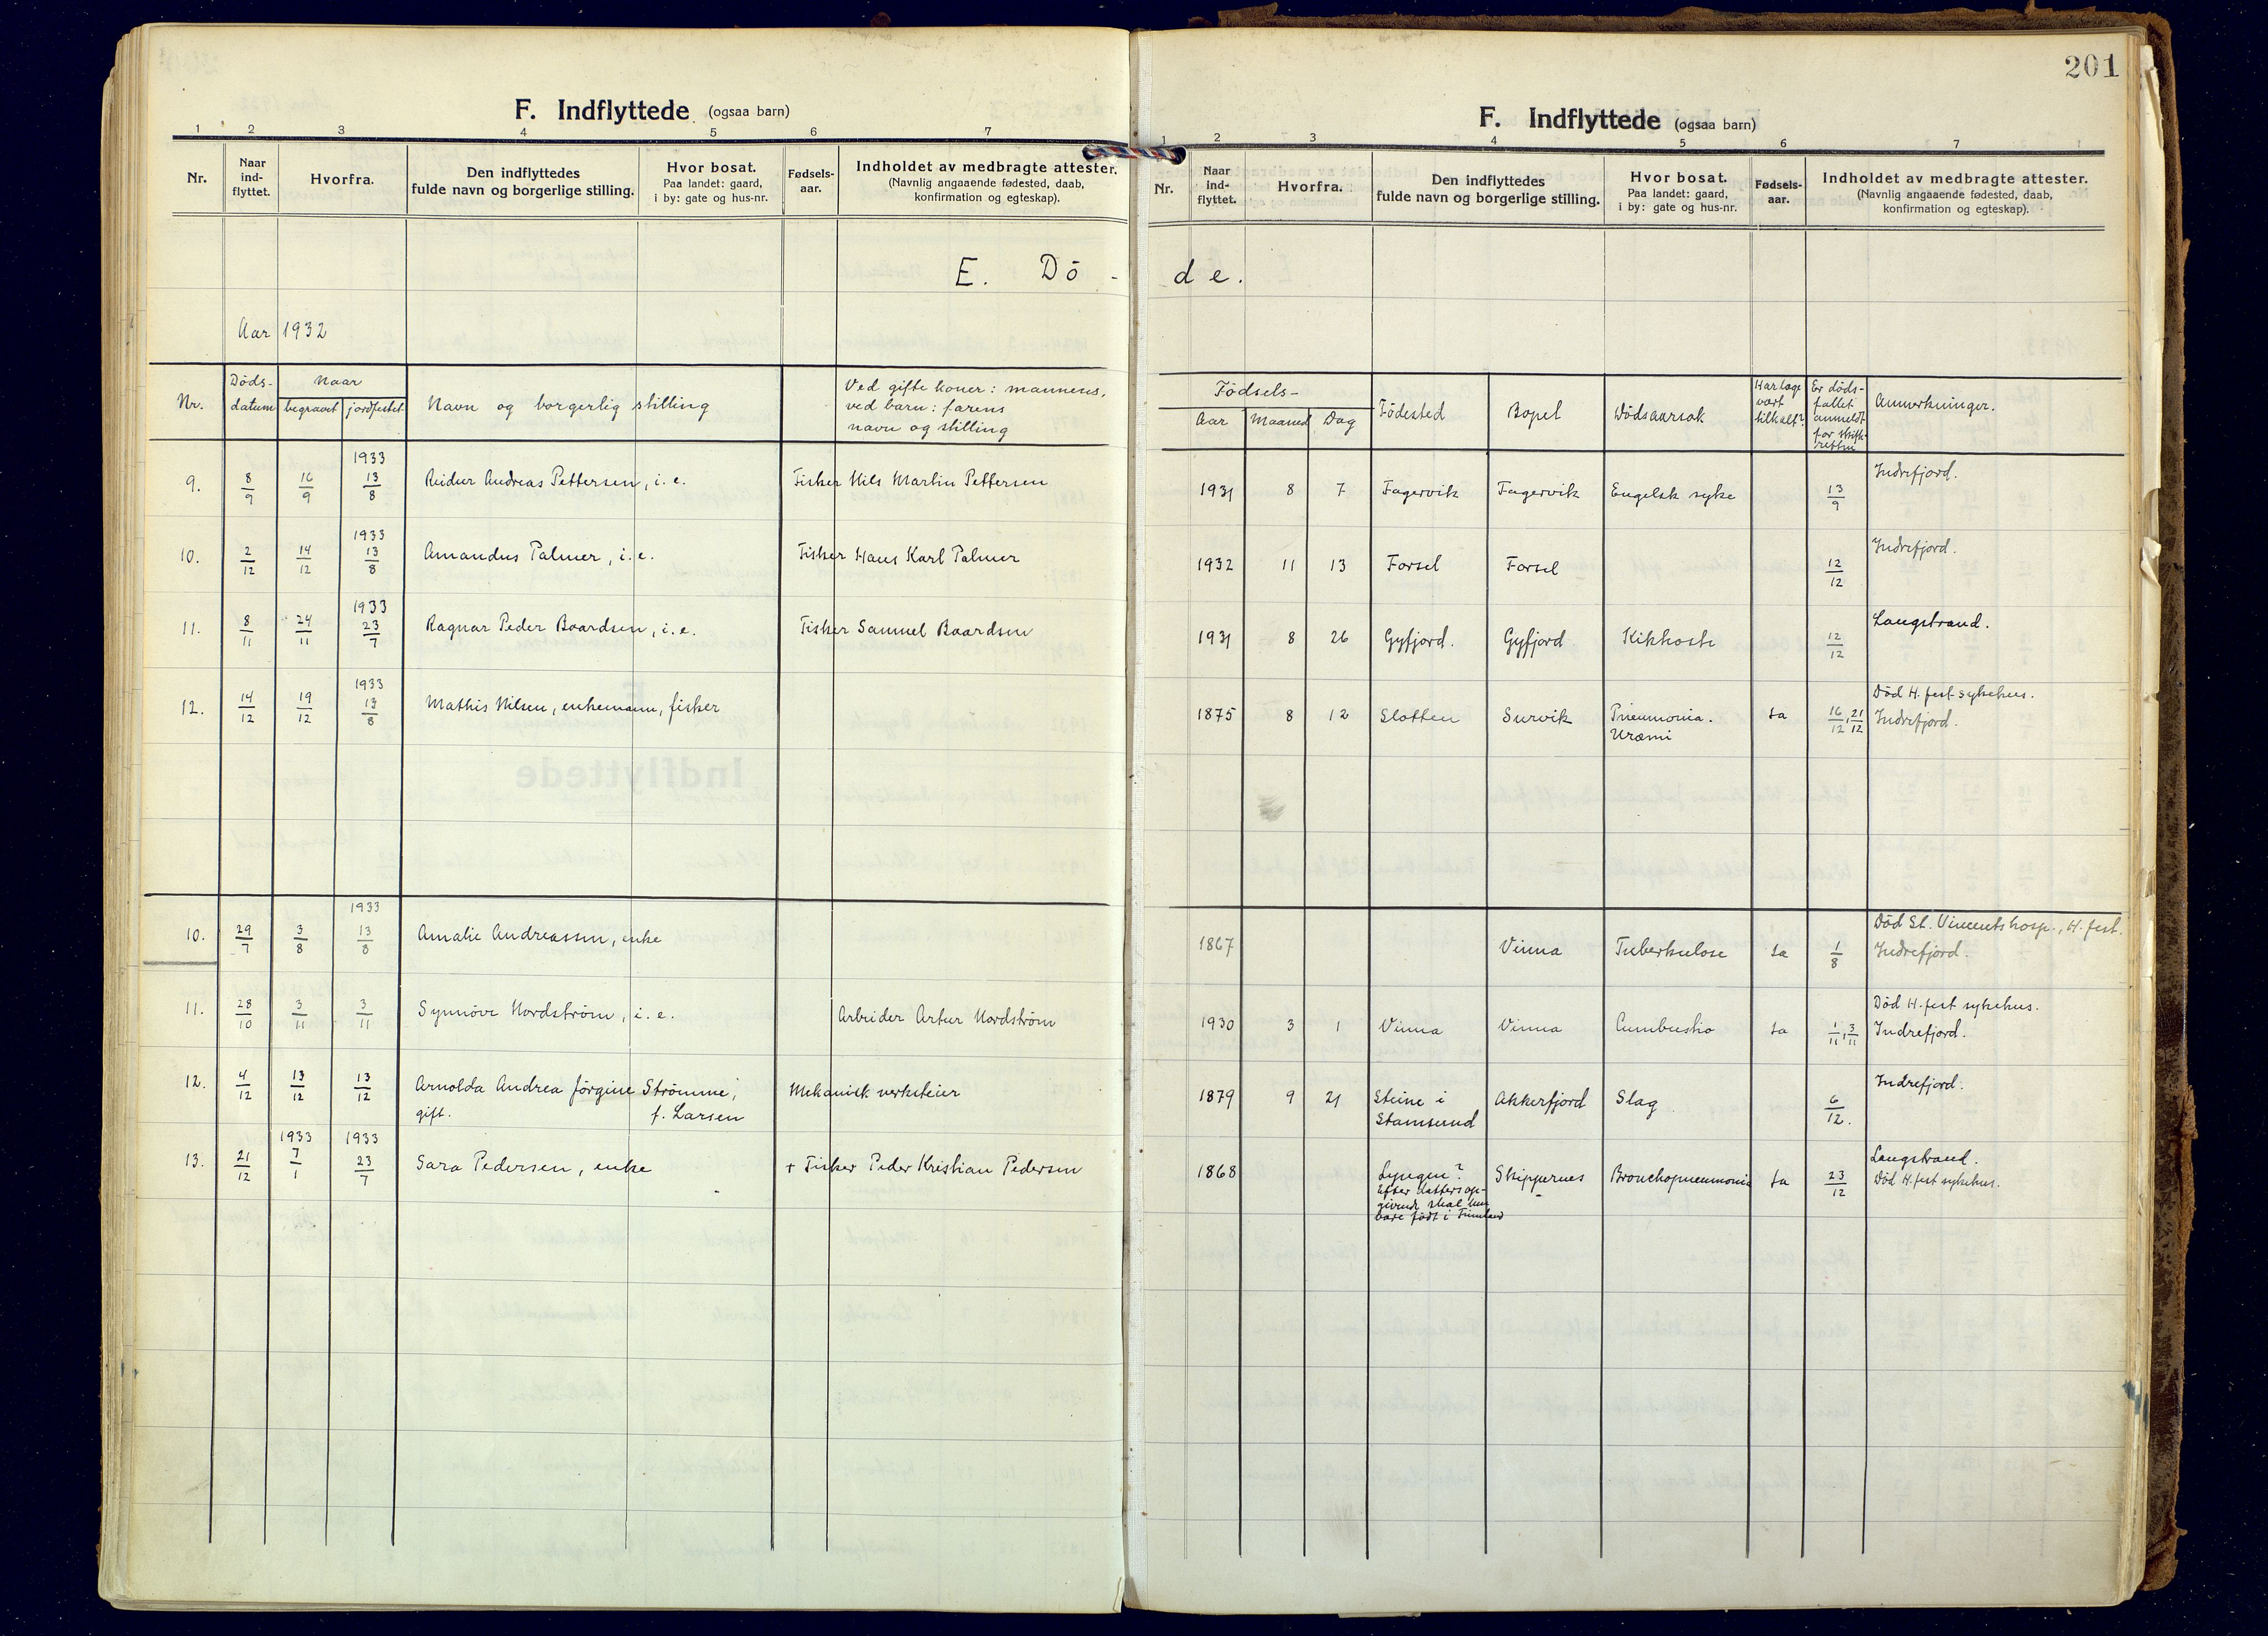 201
F. Indflyttede (ogsaa barn)
1 2 3 4 5 6 7
Nr. Naar ind-flyttet. Hvorfra. Den indflyttedes fulde navn og borgerlige stilling. Hvor bosat. Paa landet: gaard, i by: gate og hus-nr. Fødsels-aar. Indholdet av medbragte attester. (Navnlig angaaende fødested, daab, konfirmation og egteskap).
E. Dö -
Aar 1932
Nr. Döds-datum Naar begravet jordfestet Navn og borgerlig stilling Ved gifte koner: mannens, ved barn: farens navn og stilling
9. 8/9 16/9 1933 13/8 Reidur Andreas Pettersen, i. e. Fisker Nils Martin Pettersen
10. 2/12 14/12 1933 13/8 Amandus Palmer, i. e. Fisker Hans Karl Palmer
11. 8/11 24/11 1933 23/7 Ragnar Peder Baardsen, i. e. Fisker Samuel Baardsen
12. 14/12 19/12 1933 13/8 Mathis Nilsen, enkemann, fisker
10. 29/7 3/8 1933 13/8 Amalie Andreassen, enke
11. 28/10 3/11 3/11 Synnöve Nordström, i. e. Arbeider Artur Nordström
12. 4/12 13/12 13/12 Arnolda Andrea Jörgine Strömme, Mekanisk verkseier
gift. f. Larsen
13. 21/12 1933 7/1 1933 23/7 Sara Pedersen, enke + Fisker Peder Kristian Pedersen
F. Indflyttede (ogsaa barn)
1 2 3 4 5 6 7
Nr. Naar ind-flyttet. Hvorfra. Den indflyttedes fulde navn og borgerlige stilling. Hvor bosat. Paa landet: gaard, i by: gate og hus-nr. Fødsels-aar. Indholdet av medbragte attester. (Navnlig angaaende fødested, daab, konfirmation og egteskap).
de.
Födsels- Aar Maaned Dag Födested Bopel Dödsaarsak Har læge vært tilkalt? Er döds-fallet anmeldt for skifte-retten Anmerkninger.
1931 8 7 Fagervik Fagervik Engelsk syke 13/9 Indrefjord.
1932 11 13 Forsöl Forsöl 12/12 Indrefjord.
1931 8 26 Gyfjord. Gyfjord. Kikhoste 12/12 Langstrand.
1875 8 12 Slotten Survik Pneumonia. Uræmi Ja 16/12, 21/12 Död H. fest sykehus. Indrefjord.
1867 Vinna Tuberkulose Ja 1/8 Död St. Vincents hosp., H. fest. Indrefjord.
1930 3 1 Vinna Vinna Cumbustio Ja 1/11, 3/11 Död H. fest sykehus. Indrefjord.
1879 9 21 Steine i Stamsund Akkerfjord Slag 6/12. Indrefjord.
1868 Lyngen? Efter datters op-givende skal hun være födt i Finnland Skippernes Bronchopneumonia Ja 23/12 Langstrand. Död H. fest sykehus.